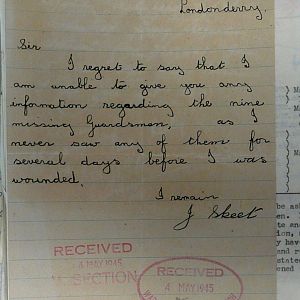 Londonderry.
Sir
I regret to say that I
am unable to give you any
information regarding the nine
missing Guardsmen, as I
never saw any of them for
several days before I was
wounded.
I remain
J Skeet
RECEIVED
4 MAY 1945
SECTION
RECEIVED
4 MAY 1945